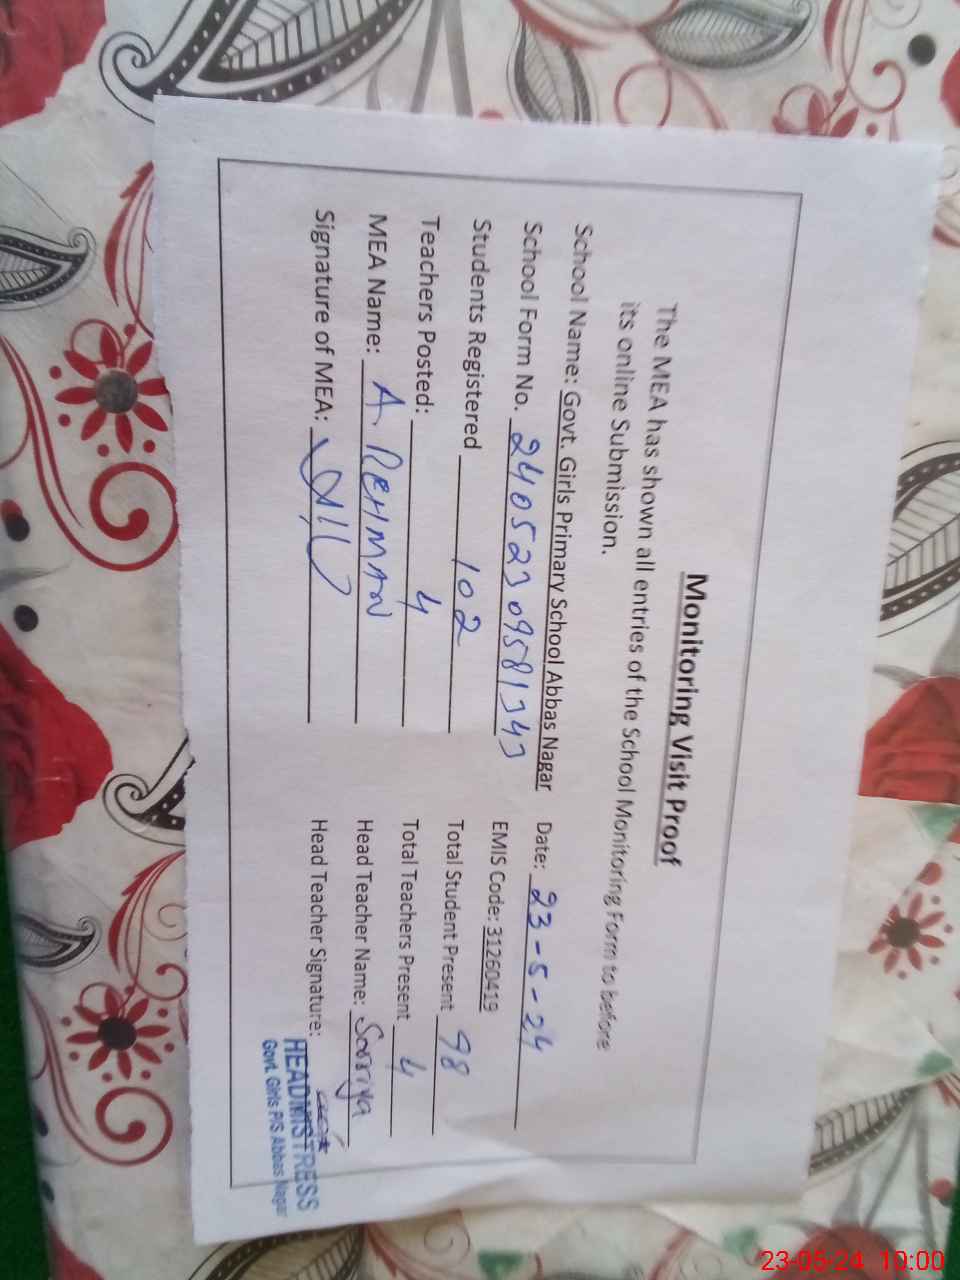 Monitoring Visit Proof
The MEA has shown all entries of the School Monitoring Form to before
its online Submission.
School Name: Govt. Girls Primary School Abbas Nagar Date: 23-5-24
School Form No. 24052309581343 EMIS Code: 31260419
Students Registered 102 Total Student Present 98
Teachers Posted: 4 Total Teachers Present 4
MEA Name: A. REHMAN Head Teacher Name:
Signature of MEA: Head Teacher Signature:
HEADMISTRESS
Govt. Girls P/S Abbas Nagar
23-05-24 10:00